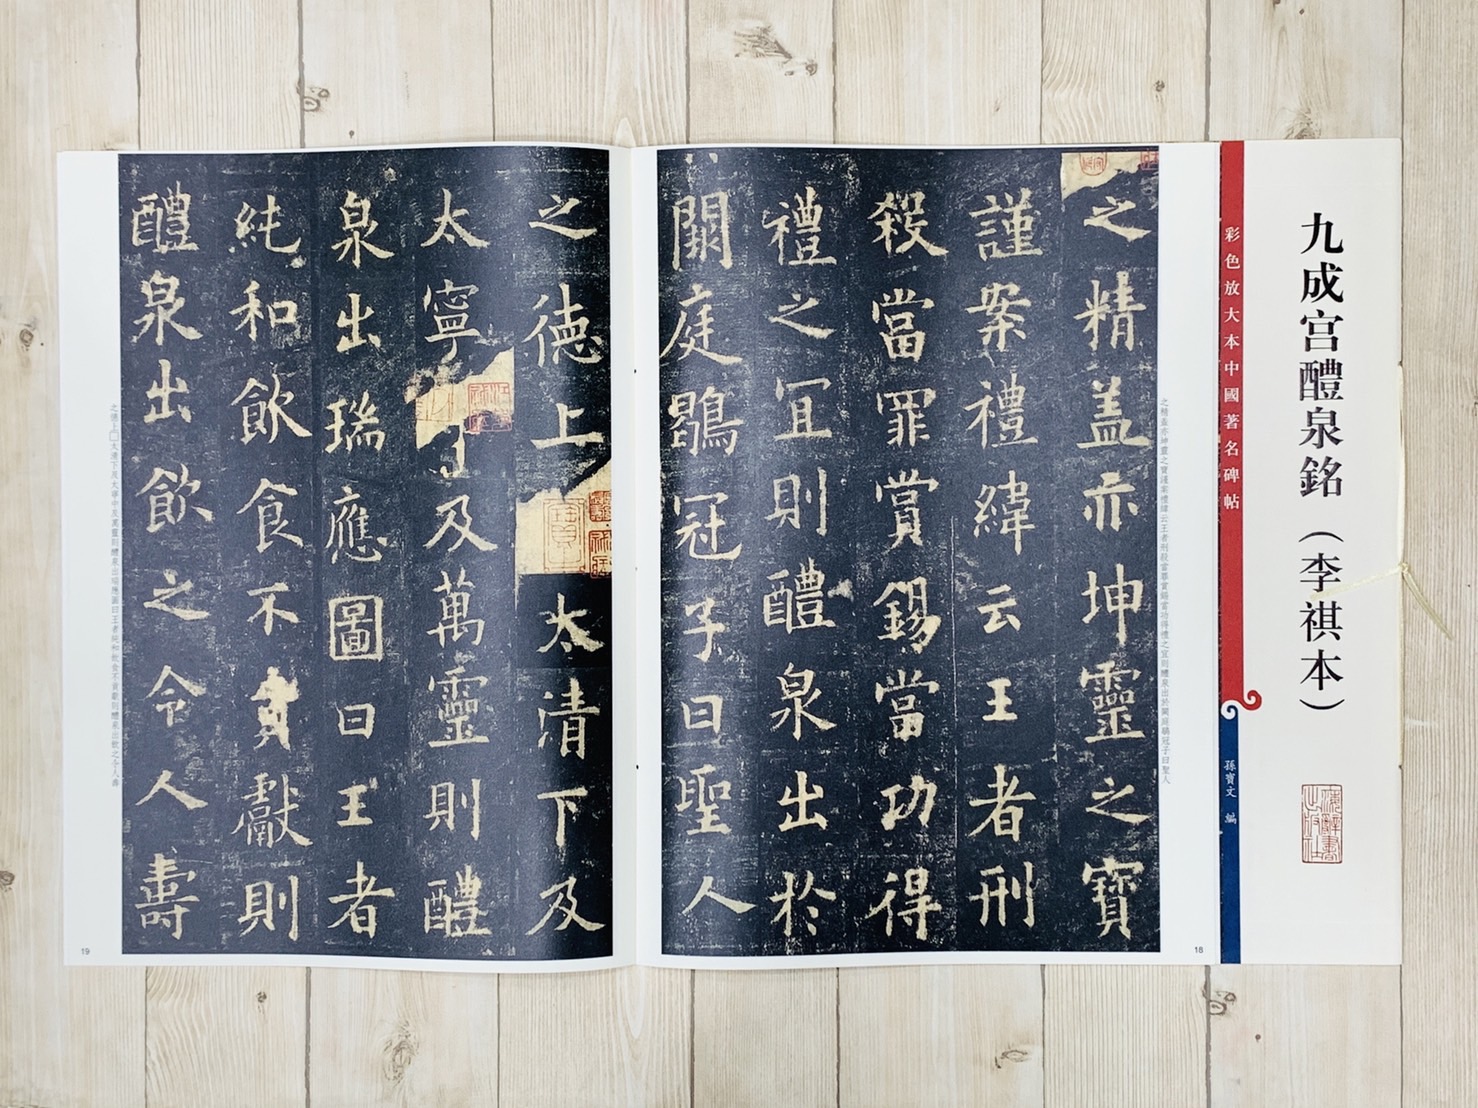 九成宫醴泉銘（李祺本）
彩色放大本中國著名碑帖
孫寶文 編
之精盖亦坤靈之寶謹案禮緯云王者刑殺當罪賞錫當功得禮之宜則醴泉出於闕庭鶡冠子曰聖人
之精盖亦坤靈之寶
謹案禮緯云王者刑
殺當罪賞錫當功得
禮之冝則醴泉出於
闕庭鶡冠子曰聖人
18
之德上太清下及
太寧中及萬靈則醴
泉出瑞應圖曰王者
純和飲食不貢獻則
醴泉出飲之令人壽
之德上□太清下及太寧中及萬靈則醴泉出瑞應圖曰王者純和飲食不貢獻則醴泉出飲之令人壽
19